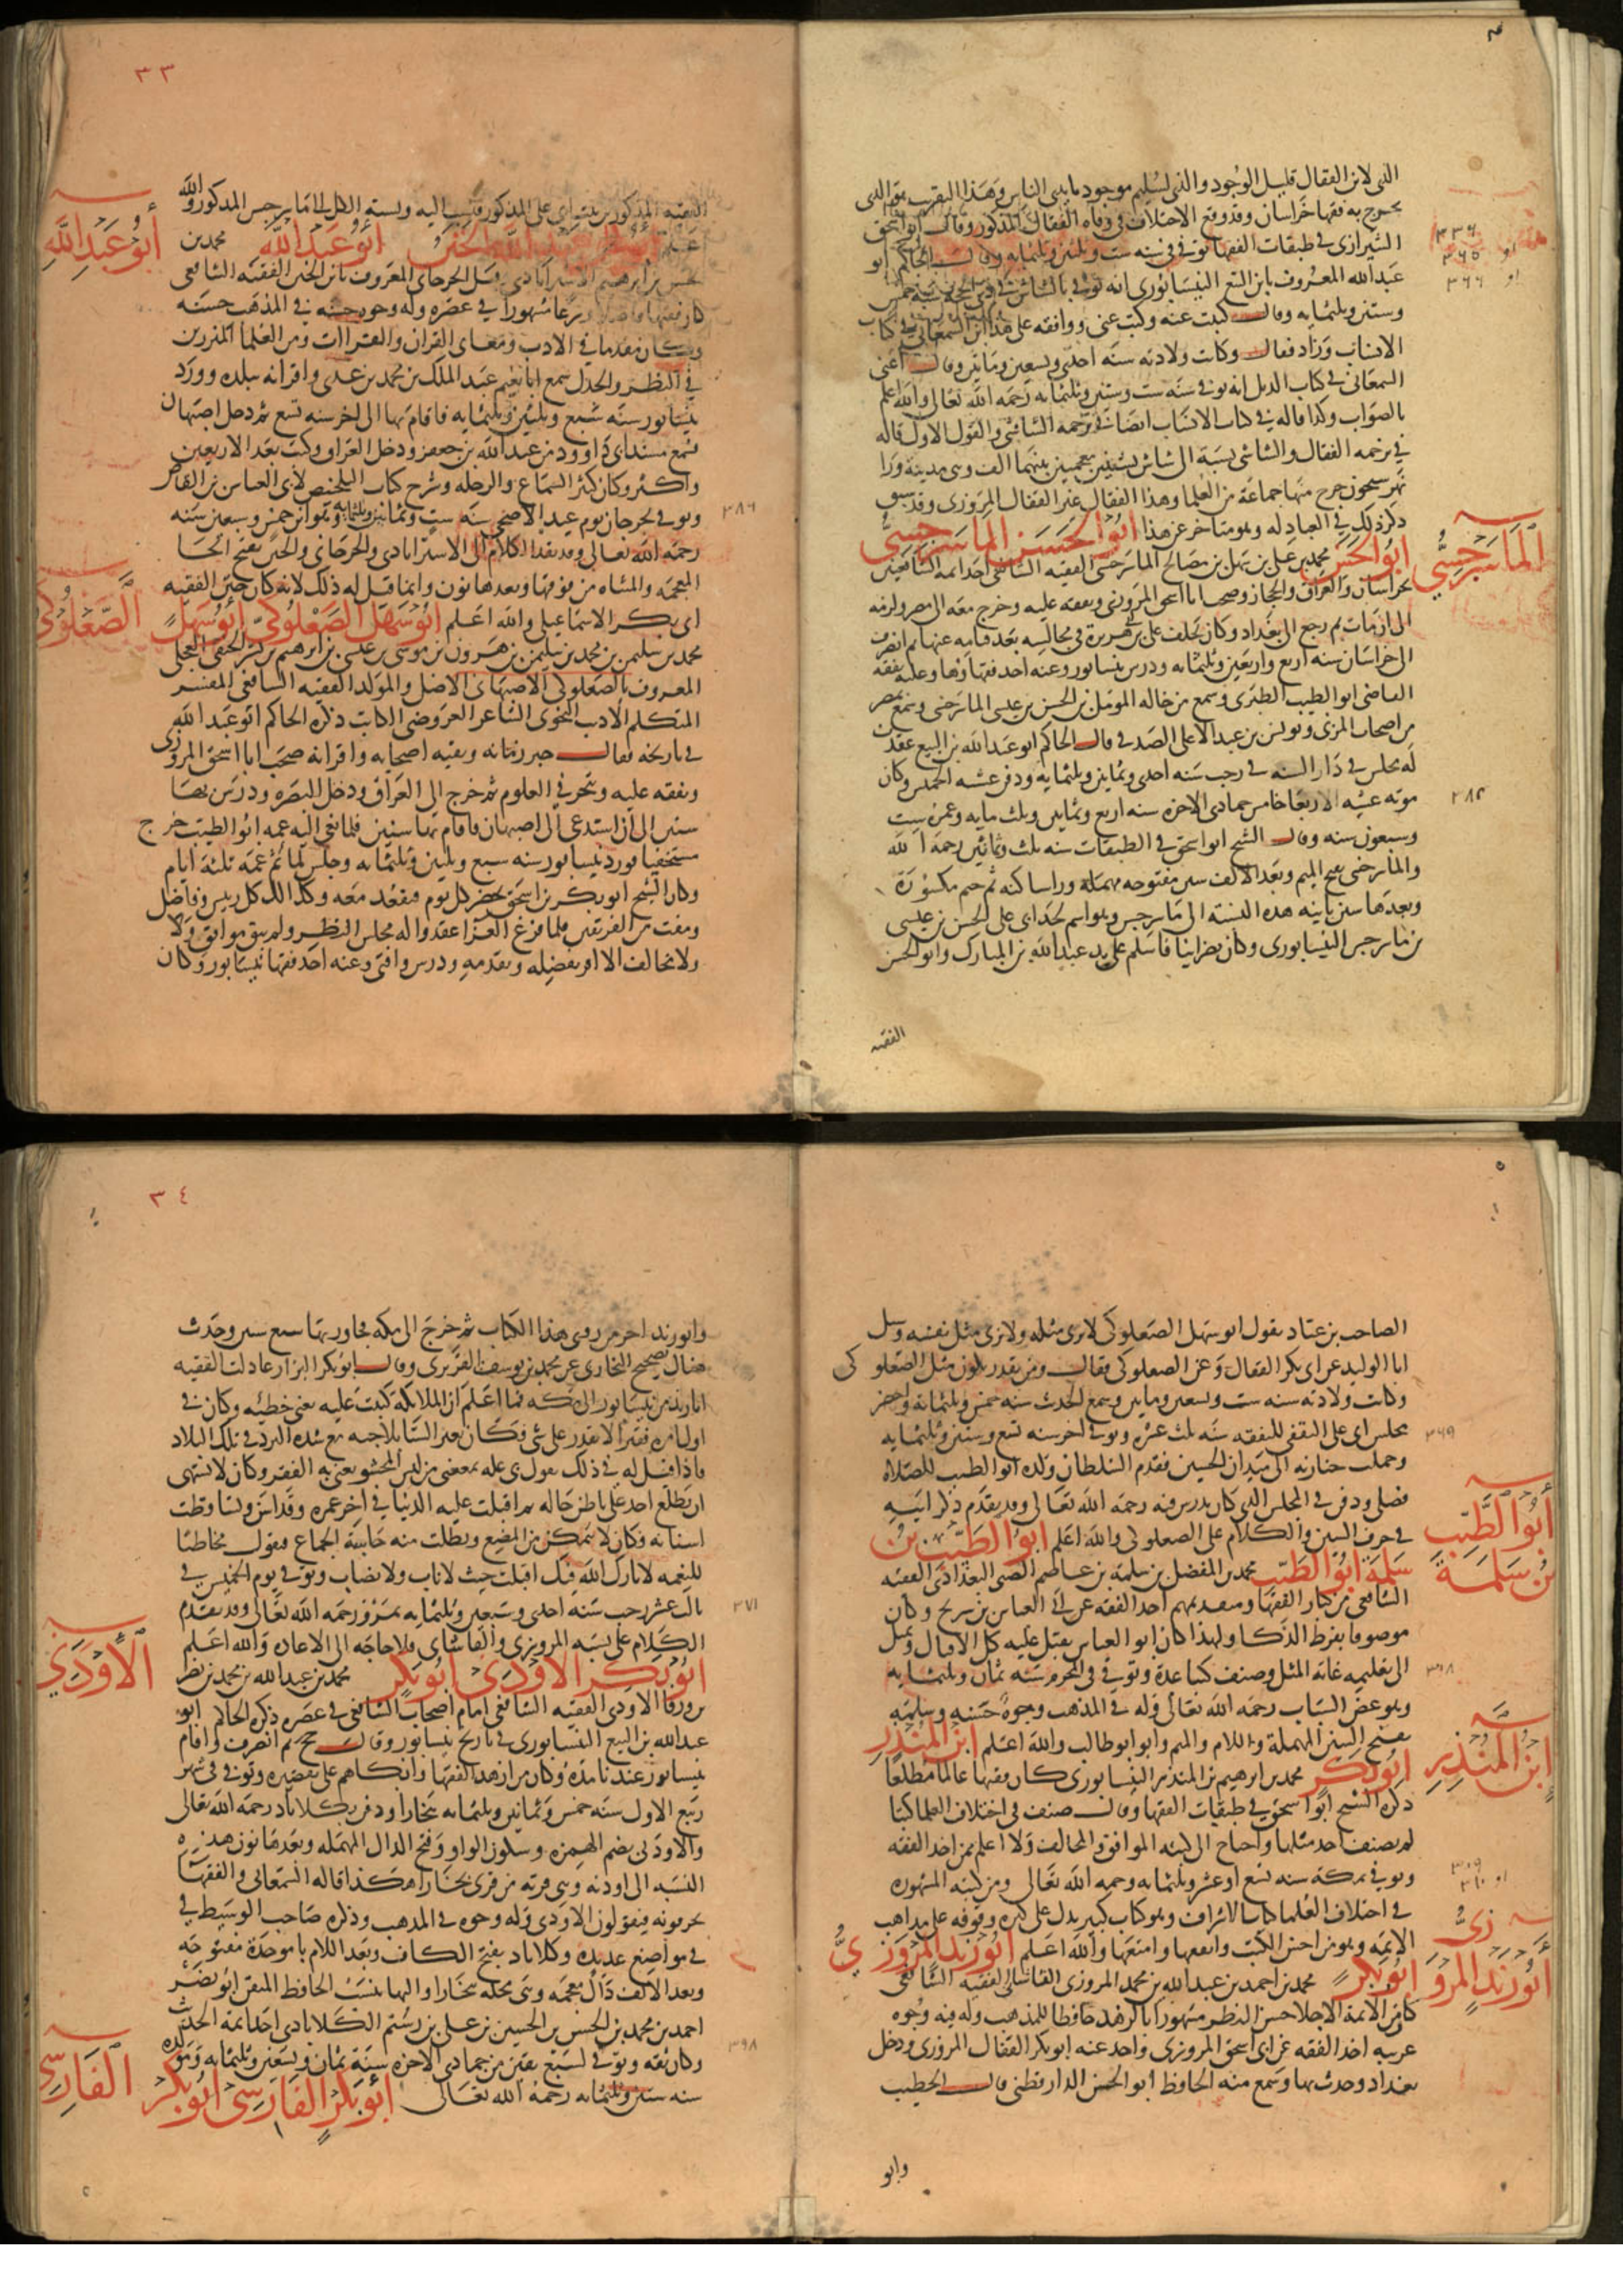 الذي لابن القفال قليل الوجود والذي لسليم موجود بايدي الناس وهذا التقريب هو الذي
تخرج به فقها خراسان وقد وقع الاختلاف في وفاة القفال المذكور وقال ابو اسحق
الشيرازي في طبقات الفقها توفي في سنه ست وثلثين وثلثمايه وقال الحاكم ابو
عبد الله المعروف بابن البيع النيسابوري انه توفي بالشاش في ذي الحجه سنه خمس
وستين وثلثمايه وقال كتبت عنه وكتب عني ووافقه على هذا ابن السمعاني في كتاب
الانساب وزاد فقال وكانت ولادته سنه احدى وتسعين ومايتين وقال اعني
السمعاني في كتاب الذيل انه توفي سنه ست وستين وثلثمايه رحمه الله تعالى والله اعلم
بالصواب وكذا قاله في كتاب الانساب ايضا في ترجمه الشاشي والقول الاول قاله
في ترجمه القفال والشاشي نسبة الى شاش بشينين معجمتين بينهما الف وهي مدينة ورا
نهر سيحون خرج منها جماعة من العلما وهذا القفال غير القفال المروزي وقد سبق
ذكر ذلك في العبادله وهو متاخر عن هذا ابو الحسن الماسرجسي
ابو الحسن محمد بن علي بن سهل بن مصلح الماسرجسي الفقيه الشافعي احد ايمه الشافعيين
بخراسان والعراق والحجاز وصحب ابا اسحق المروزي وتفقه عليه وخرج معه الى مصر ولزمه
الى ان مات ثم رجع الى بغداد وكان يخلف علي بن ابي هريرة في مجالسه بعد قيامه عنها ثم انصرف
الى خراسان سنه اربع واربعين وثلثمايه ودرس بنيسابور وعنه اخذ فقهاوها وعليه تفقه
القاضي ابو الطيب الطبري وسمع من خاله المومل بن الحسن بن عيسى الماسرجسي وسمع بمصر
من اصحاب المزني ويونس بن عبد الاعلى الصدفي قال الحاكم ابو عبد الله بن البيع عقدت
له مجلس في دار السنه في رجب سنه احدى وثمانين وثلثمايه ودفن عشيه الخميس وكان
موته عشيه الاربعا خامس جمادى الاخره سنه اربع وثمانين وثلث مايه وعمره ست
وسبعون سنه وقال الشيخ ابو اسحق في الطبقات سنه ثلث وثمانين رحمه الله
والماسرجسي بفتح الميم وبعد الالف سين مفتوحه مهملة ورا ساكنه ثم جيم مكسورة
وبعدها سين ثانيه هذه النسبه الى ماسرجس وهو اسم لجد ابي علي الحسن بن عيسى
بن ماسرجس النيسابوري وكان نصرانيا فاسلم على يد عبد الله بن المبارك وابو الحسن
الماسرجسي
٣٣٦
او ٣٦٥
او ٣٦٦
٣٨٤
الفقيه
٣٣
الفقيه المذكور
والله
ابو عبد الله محمد بن
كان فقيها فاضلا ورعا مشهورا في عصره وله وجوه حسنه في المذهب حسنه
وكان مقدما في الادب ومعاني القران والقراات ومن العلما المبرزين
في النظر والجدل سمع ابا نعيم عبد الملك بن محمد بن عدي واقرانه ببلده وورد
نيسابور سنه سبع وثلثين وثلثمايه فاقام بها الى اخر سنه تسع ثم دخل اصبهان
فسمع مسند ابي داوود من عبد الله بن جعفر ودخل العراق وكتب بعد الاربعين
واكثر وكان كثير السماع والرحله وشرح كتاب التلخيص لابي العباس بن القاص
وتوفي بجرجان يوم عيد الاضحى سنه ست وثمانين وثلثمايه وهو ابن خمس وسبعين سنه
رحمه الله تعالى وقد تقدم الكلام الى الاستراباذي والجرجاني والختن بفتح الخا
المعجمه والمثناه من فوقها وبعدها نون وانما قيل له ذلك لانه كان ختن الفقيه
ابي بكر الاسماعيلي والله اعلم ابو سهل الصعلوكي ابو سهل
محمد بن سليمن بن محمد بن سليمن بن هرون بن موسى بن عيسى بن ابراهيم بن بشر الحنفي العجلي
المعروف بالصعلوكي الاصبهاني الاصل والمولد الفقيه الشافعي المفسر
المتكلم الاديب النحوي الشاعر العروضي الكاتب ذكره الحاكم ابو عبد الله
في تاريخه فقال حبر زمانه وبقيه اصحابه واقرانه صحب ابا اسحق المروزي
وتفقه عليه وتبحر في العلوم ثم خرج الى العراق ودخل البصره ودرس بها
سنين الى ان استدعي الى اصبهان فاقام بها سنين فلما نعي اليه عمه ابو الطيب خرج
مستخفيا فورد نيسابور سنه سبع وثلثين وثلثمايه وجلس لماتم عمه ثلثة ايام
وكان الشيخ ابو بكر بن اسحق يحضر كل يوم فيقعد معه وكذا لك كل رييس وقاض
ومفت من الفريقين فلما فرغ العزا عقدوا له مجلس النظر ولم يبق موافق ولا
ولا مخالف الا اقر بفضله وتقدمه ودرس وافتى وعنه اخذ فقها نيسابور وكان
ابو عبد الله
الصعلوكي
٣٨٦
الصاحب بن عباد يقول ابو سهل الصعلوكي لا نرى مثله ولا نرى مثل نفسه وسيل
ابا الوليد عن ابي بكر القفال وعن الصعلوكي فقال ومن يقدر يكون مثل الصعلوكي
وكانت ولادته سنه ست وتسعين ومايتين وسمع الحديث سنه خمس وثلثمايه وحضر
مجلس ابي علي الثقفي للتفقه سنه ثلث عشره وتوفي اخر سنه تسع وستين وثلثمايه
وحملت جنازته الى ميدان الحسين فقدم السلطان ولده ابو الطيب للصلاة
فصلى ودفن في المجلس الذي كان يدرس فيه رحمه الله تعالى وقد تقدم ذكر ابنيه
في حرف السين والكلام على الصعلوكي والله اعلم ابو الطيب بن
سلمة ابو الطيب محمد بن المفضل بن سلمة بن عاصم الضبي البغداذي الفقيه
الشافعي من كبار الفقها ومتقدميهم اخذ الفقه عن ابي العباس بن سريج وكان
موصوفا بفرط الذكا ولهذا كان ابو العباس يقبل عليه كل الاقبال ويميل
الى تعليمه غايه الميل وصنف كتبا عدة وتوفي في المحرم سنه ثمان وثلثمايه
وهو غض الشباب رحمه الله تعالى وله في المذهب وجوه حسنه وسلمه
بفتح السين المهملة واللام والميم وابو ابو طالب والله اعلم ابن المنذر
ابو بكر محمد بن ابراهيم بن المنذر النيسابوري كان فقيها عالما مطلعا
ذكره الشيخ ابو اسحق في طبقات الفقها وقال صنف في اختلاف العلما كتبا
لم يصنف احد مثلها واحتاج الى كتبه الموافق والمخالف ولا اعلم عمن اخذ الفقه
وتوفي بمكة سنه تسع او عشر وثلثمايه رحمه الله تعالى ومن كتبه المشهوره
في اختلاف العلما كتاب الاشراف وهو كتاب كبير يدل على كثرة وقوفه على مذاهب
الايمه وهو من احسن الكتب وانفعها وامتعها والله اعلم ابو زيد المروزي
ابو بكر محمد بن احمد بن عبد الله بن محمد المروزي الفاشاني الفقيه الشافعي
كان من الايمة الاجلا حسن النظر مشهورا بالزهد حافظا للمذهب وله فيه وجوه
غريبه اخذ الفقه عن ابي اسحق المروزي واخذ عنه ابو بكر القفال المروزي ودخل
بغداد وحدث بها وسمع منه الحافظ ابو الحسن الدارقطني قال الخطيب
ابو الطيب
بن سلمة
ابن المنذر
ابو زيد المروزي
٣٦٩
٣٠٨
٣٠٩
او ٣١٠
وابو
٥
٣٤
وابو زيد اخر من روى هذا الكتاب ثم خرج الى مكه فجاور بها سبع سنين وحدث
هناك بصحيح البخاري عن محمد بن يوسف الفربري وقال ابو بكر البزار عادلت الفقيه
ابا زيد من نيسابور الى مكه فما اعلم ان الملايكة كتبت عليه يعني خطيئه وكان في
اول امره فقيرا لا يقدر على شي فكان يعبر الشتا بلا جبه مع شده البرد في تلك البلاد
فاذا قيل له في ذلك يقول بي عله تمنعني من لبس المحشو يعني به الفقر وكان لا يشتهي
ان يطلع احد على باطن حاله ثم اقبلت عليه الدنيا في اخر عمره وقد اسن وتساقطت
اسنانه فكان لا يتمكن من المضغ وبطلت منه حاسة الجماع فيقول مخاطبا
للنعمه لا بارك الله فيك اقبلت حيث لا ناب ولا نصاب وتوفي يوم الخميس في
ثالث عشر رجب سنه احدى وسبعين وثلثمايه بمرو رحمه الله تعالى وقد تقدم
الكلام على نسبه المروزي والفاشاني فلا حاجه الى الاعاده والله اعلم
ابو بكر الاودني ابو بكر محمد بن عبد الله بن محمد بن نصر
بن ورقا الاودني الفقيه الشافعي امام اصحاب الشافعي في عصره ذكره الحاكم ابو
عبد الله بن البيع النيسابوري في تاريخ نيسابور وقال حج ثم انصرف واقام
بنيسابور عندنا مدة وكان من ازهد الفقها وابكاهم على تقصيره وتوفي في شهر
ربيع الاول سنه خمس وثمانين وثلثمايه ببخارا ودفن بكلاباذ رحمه الله تعالى
والاودني بضم الهمزه وسكون الواو وفتح الدال المهمله وبعدها نون هذه
النسبه الى اودنه وهي قريه من قرى بخارا هكذا قاله السمعاني والفقها
يحرفونه فيقولون الاودي وله وجوه في المذهب وذكره صاحب الوسيط في
في مواضع عديده وكلاباذ بفتح الكاف وبعد اللام با موحدة مفتوحه
وبعد الالف ذال معجمه وهي محله ببخارا واليها ينسب الحافظ المتقن ابو نصر
احمد بن محمد بن الحسن بن الحسين بن علي بن رستم الكلاباذي احد ايمة الحديث
وكان ثقه وتوفي لسبع بقين من جمادى الاخره سنة ثمان وتسعين وثلثمايه ومولده
سنه ستين وثلثمايه رحمه الله تعالى ابو بكر الفارسي ابو بكر
الاودني
الفارسي
٣٧١
٣٩٨